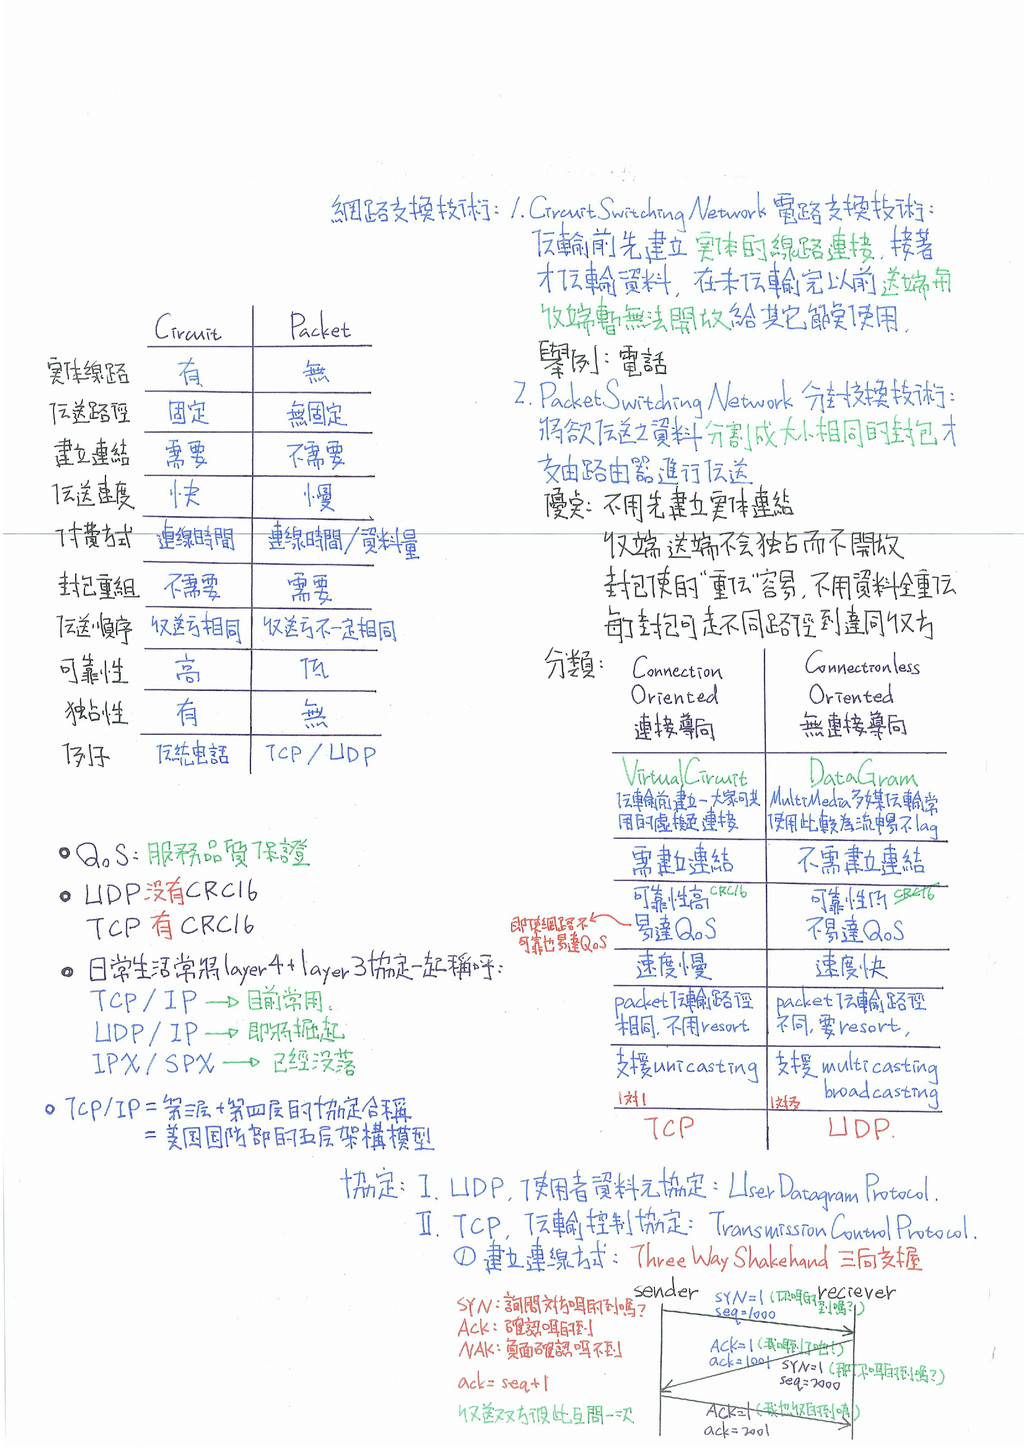 網路交換技術: 1. Circuit Switching Network 電路交換技術:
伝輸前先建立実体的線路連接, 接著
才伝輸資料, 在未伝輸完以前送端與
收端暫無法開放給其它節奌使用,
舉例: 電話
2. Packet Switching Network 分封校換技術:
將欲伝送之資料分割成大小相同的封包才
交由路由器進行伝送
優奌: 不用先建立実体連結
收端送端不会独占而不開放
封包使的"重伝"容易, 不用資料全重伝
每封包可走不同路徑到達同收方
Circuit Packet
実体線路 有 無
伝送路徑 固定 無固定
建立連結 需要 不需要
伝送速度 快 慢
付費方式 連線時間 連線時間/資料量
封包重組 不需要 需要
伝送順序 收送方相同 收送方不一定相同
可靠性 高 低
独占性 有 無
例子 伝統電話 TCP/UDP
分類: Connection Oriented 連接導向
Connectionless Oriented 無連接導向
Virtual Circuit DataGram
伝輸前建立一大家可共
用的虛擬連接
MultiMedia多媒伝輸常
使用此較為流暢不lag
需建立連結 不需建立連結
可靠性高 CRC16 可靠性低 CRC16
易達QoS 不易達QoS
即使網路不
可靠也易達QoS
速度慢 速度快
packet伝輸路徑 packet伝輸路徑
相同, 不用resort 不同, 要resort,
支援unicasting 支援 multicasting
broadcasting
1対1 1対多
TCP UDP.
QoS: 服務品質保證
UDP 沒有CRC16
TCP 有 CRC16
日常生活常將layer4+layer3協定一起稱呼:
TCP/IP → 目前常用.
UDP/IP → 即將掘起
IPX/SPX → 已經没落
TCP/IP = 第三层+第四层的協定合稱
= 美国国防部的五层架構模型
協定: I. UDP, 使用者資料元協定: User Datagram Protocol.
II. TCP, 伝輸控制協定: Transmission Control Protocol.
① 建立連線方式: Three Way Shakehand 三向交握
sender reciever
SYN: 詢問対方听的到嗎?
Ack: 確認听的到
NAK: 負面確認听不到
ack= seq+1
收送双方彼此互問一次
SYN=1 (你听的到嗎?)
seq=1000
ACK=1 (我听到了啦!)
ack=1001
SYN=1 (那你听的到嗎?)
seq=2000
ACK=1 (我也收的到唷)
ack=2001